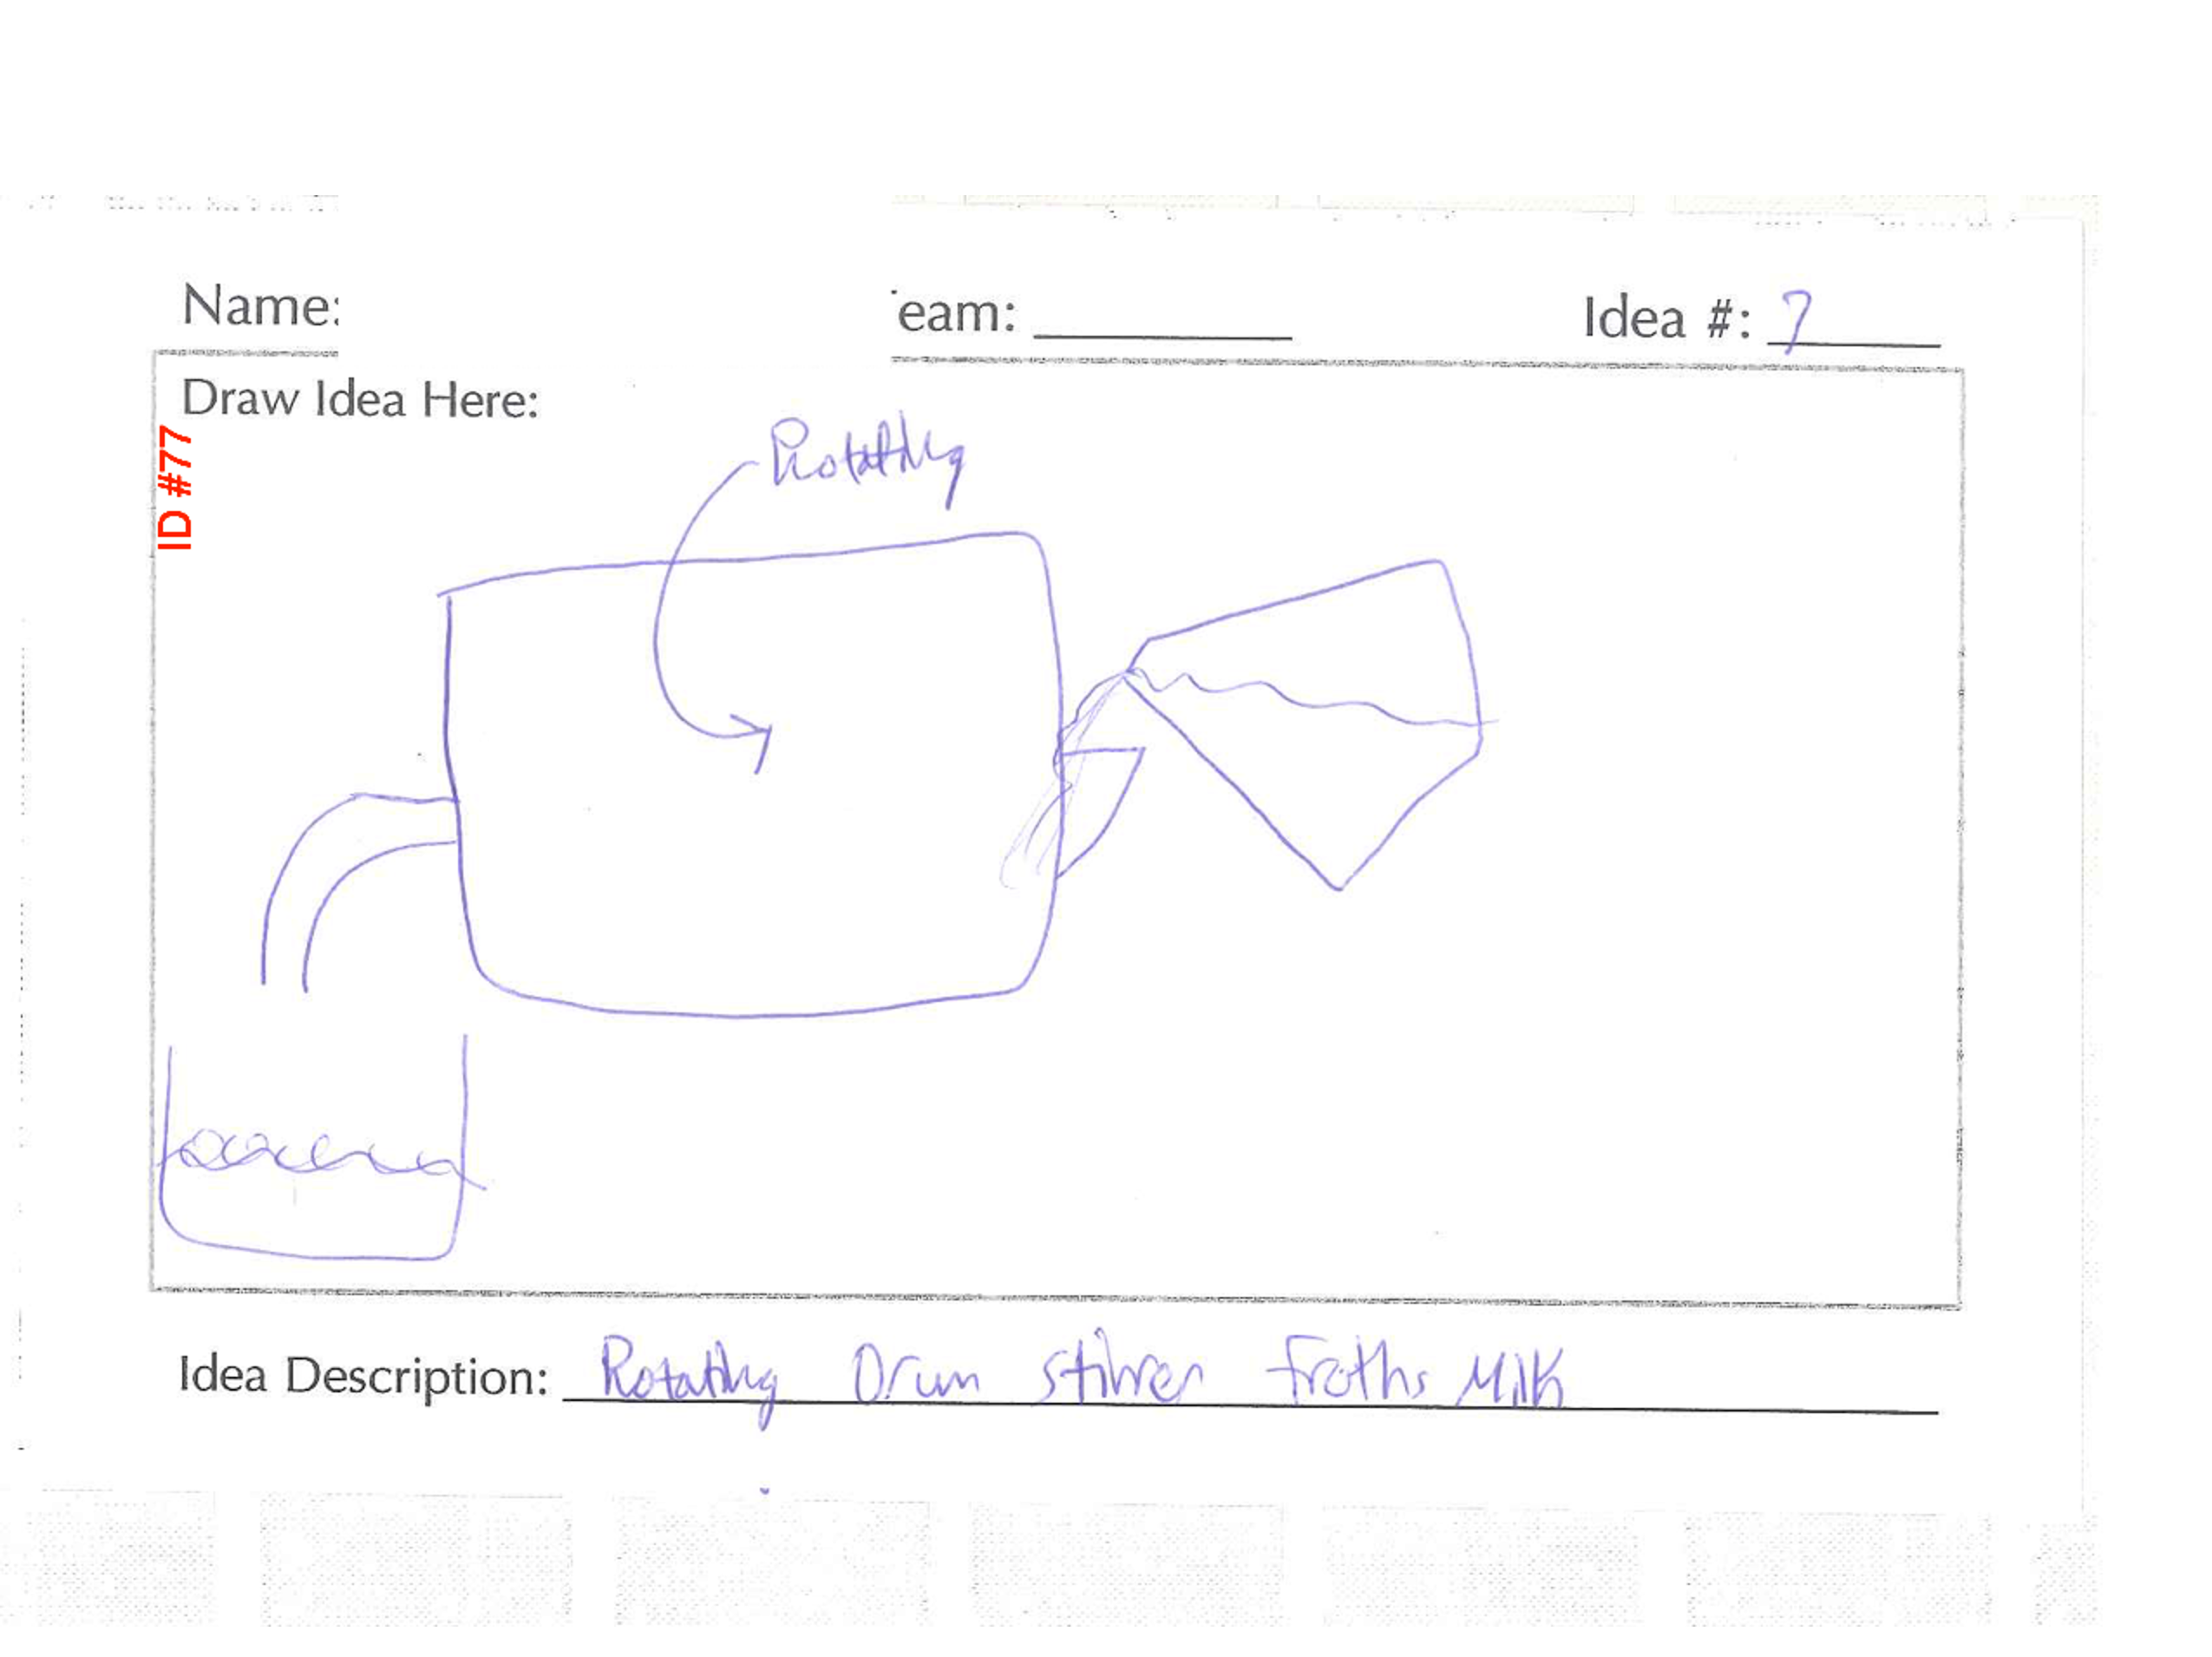 Name:
eam:
Idea #: 7
Draw Idea Here:
ID #77
Rotating
Idea Description: Rotating Drum stirrer froths Milk